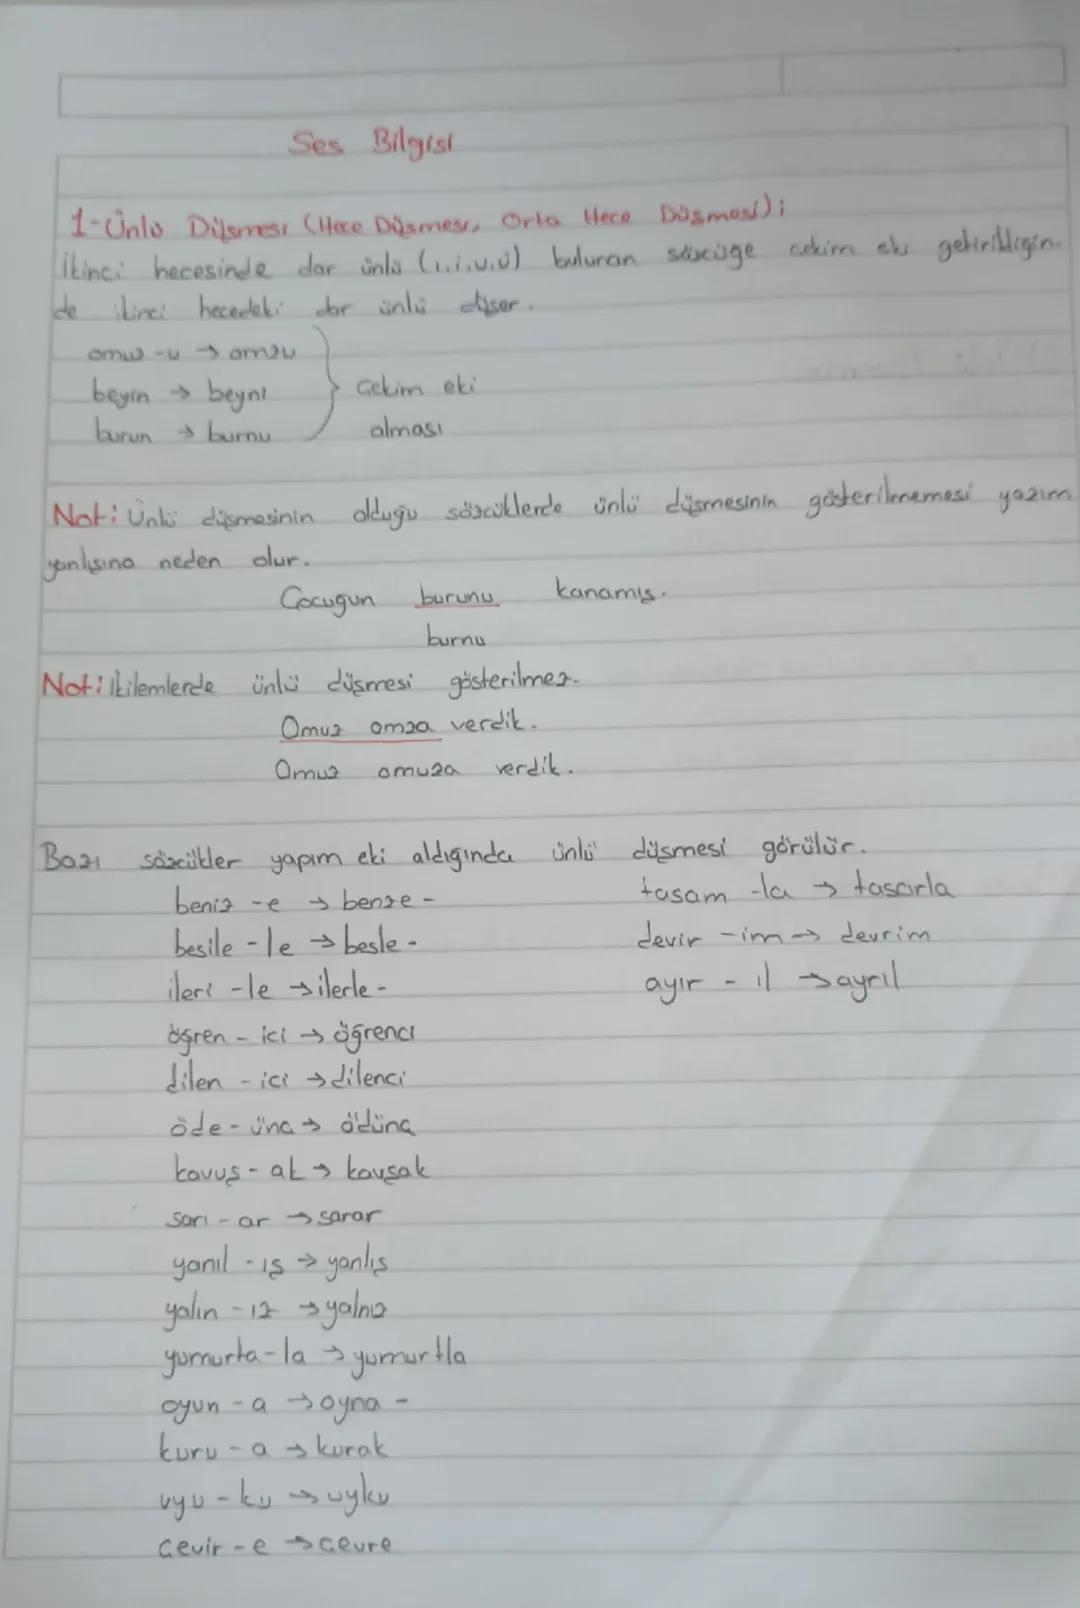 Ses Bilgisi
1-Ünlü Düşmesi (Hece Düşmesi, Orta Hece Düşmesi):
İkinci hecesinde dar ünlü (ı,i,u,ü) bulunan sözcüğe çekim eki getirildiğin-
de ikinci hecedeki dar ünlü düşer.
omuz -u → omzu
beyin → beyni
burun → burnu
Çekim eki
alması
Not: Ünlü düşmesinin olduğu sözcüklerde ünlü düşmesinin gösterilmemesi yazım
yanlışına neden olur.
Çocuğun burunu kanamış.
burnu
Not: İkilemlerde ünlü düşmesi gösterilmez.
Omuz omza verdik.
Omuz omuza verdik.
Bazı sözcükler yapım eki aldığında ünlü düşmesi görülür.
beniz -e → benze -
besile - le → besle -
ileri -le → ilerle -
öğren - ici → öğrenci
dilen - ici → dilenci
öde - ünç → ödünç
kavuş - ak → kavşak
sarı - ar → sarar
yanıl - ış → yanlış
yalın - ız → yalnız
yumurta - la → yumurtla
oyun - a → oyna -
kuru - a → kurak
uyu - ku → uyku
çevir - e → çevre
tasam -la → tasarla
devir - im → devrim
ayır - ıl → ayrıl